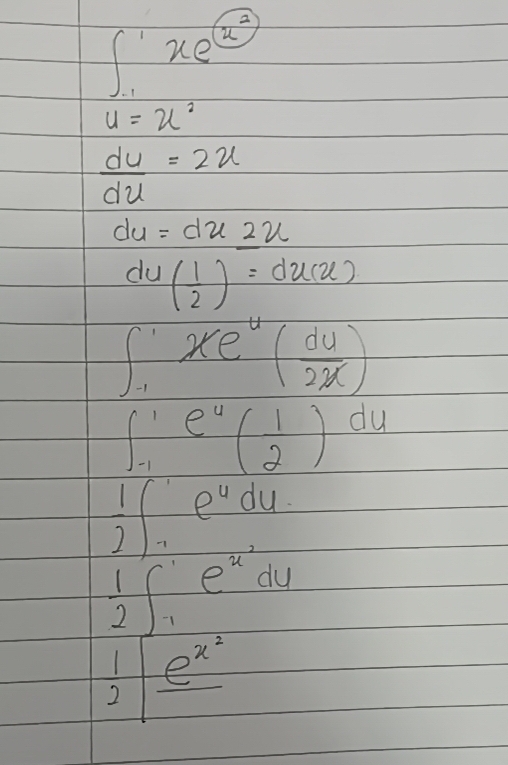 ∫₋₁¹ xe^(x²)
u = x²
du/dx = 2x
du = dx 2x
du(1/2) = dx(x)
∫₋₁¹ xe^u (du/2x)
∫₋₁¹ e^u (1/2) du
1/2 ∫₋₁¹ e^u du.
1/2 ∫₋₁¹ e^(x²) du
1/2 | e^(x²)